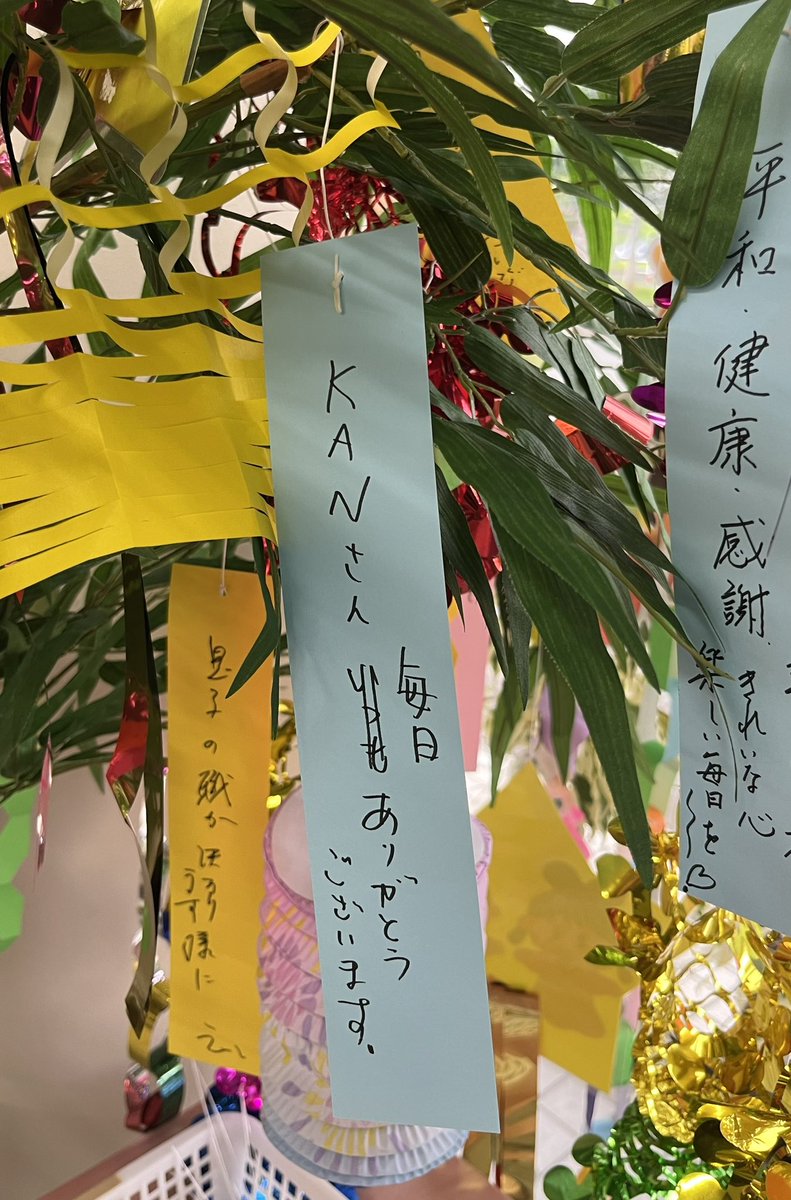 平和・健康・感謝.
きれいな心
楽しい毎日を
KANさん
毎日
ありがとう
ございます。
息子の職が
様に